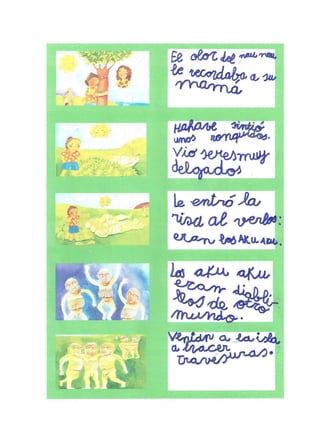 El olor del nau nau
le recordaba a su
mamá
Hahave sintió
unos ronquidos.
Vió seres muy
delgados
Le entró la
risa al verlos:
eran los AKU AKU.
Los aku aku
eran diabli
llos de otro
mundo.
Venían a la isla
a hacer
travesuras.